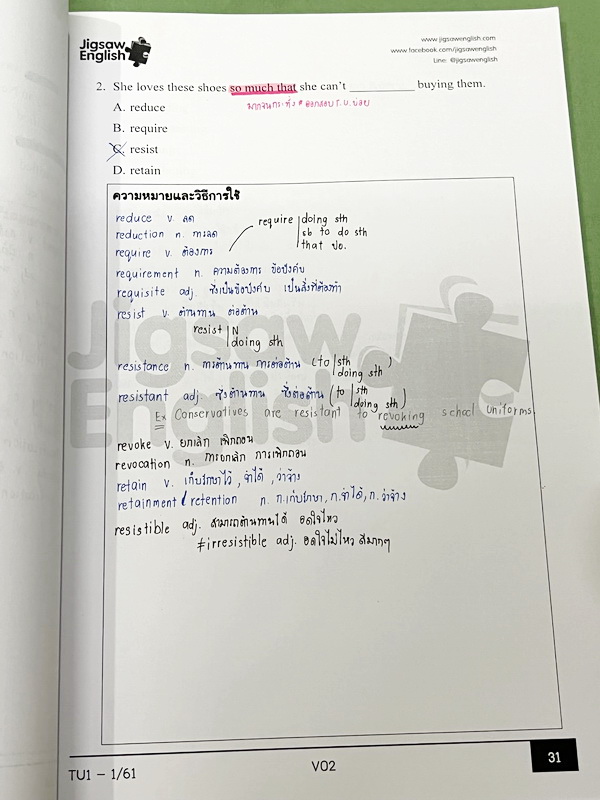 Jigsaw English
www.jigsawenglish.com
www.facebook.com/jigsawenglish
Line: @jigsawenglish
2. She loves these shoes so much that she can't __________ buying them.
มากจนกระทั่ง # ออกสอบ T.U. บ่อย
A. reduce
B. require
C. resist
D. retain
ความหมายและวิธีการใช้
reduce v. ลด
reduction n. การลด
require v. ต้องการ
require doing sth
sb to do sth
that ปย.
requirement n. ความต้องการ ข้อบังคับ
requisite adj. ซึ่งเป็นข้อบังคับ เป็นสิ่งที่ต้องทำ
resist v. ต้านทาน ต่อต้าน
resist N
doing sth
resistance n. การต้านทาน การต่อต้าน (to sth
doing sth)
resistant adj. ซึ่งต้านทาน ซึ่งต่อต้าน (to sth
doing sth)
Ex Conservatives are resistant to revoking school uniforms.
revoke v. ยกเลิก เพิกถอน
revocation n. การยกเลิก การเพิกถอน
retain v. เก็บรักษาไว้, จำได้, ว่าจ้าง
retainment / retention n. ก.เก็บรักษา, ก.จำได้, ก.ว่าจ้าง
resistible adj. สามารถต้านทานได้ อดใจไหว
≠ irresistible adj. อดใจไม่ไหว ดีมากๆ
Jigsaw English
TU1 - 1/61
VO2
31